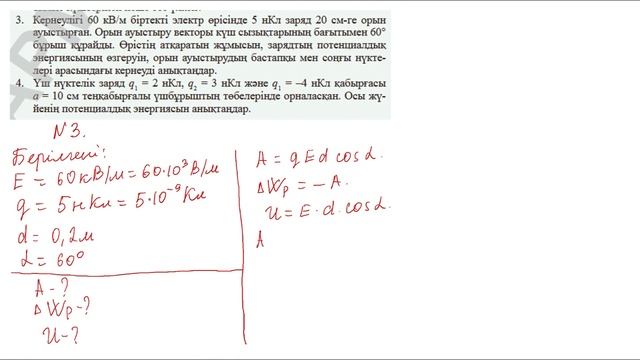 3. Кернеулігі 60 кВ/м біртекті электр өрісінде 5 нКл заряд 20 см-ге орын
ауыстырған. Орын ауыстыру векторы күш сызықтарының бағытымен 60°
бұрыш құрайды. Өрістің атқаратын жұмысын, зарядтың потенциалдық
энергиясының өзгеруін, орын ауыстырудың бастапқы мен соңғы нүкте-
лері арасындағы кернеуді анықтаңдар.
4. Үш нүктелік заряд q₁ = 2 нКл, q₂ = 3 нКл және q₁ = –4 нКл қабырғасы
a = 10 см теңқабырғалы үшбұрыштың төбелерінде орналасқан. Осы жү-
йенің потенциалдық энергиясын анықтаңдар.
N3.
Берілгені:
E = 60кВ/м = 60·10³В/м
q = 5нКл = 5·10⁻⁹Кл
d = 0,2м
α = 60°
A - ?
ΔWp - ?
U - ?
A = qEd cosα.
ΔWp = -A.
U = E·d·cosα.
A